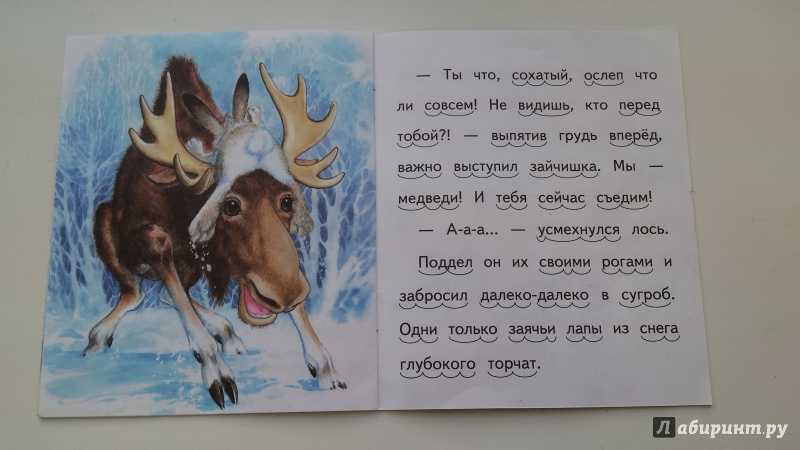 — Ты что, сохатый, ослеп что
ли совсем! Не видишь, кто перед
тобой?! — выпятив грудь вперёд,
важно выступил зайчишка. Мы —
медведи! И тебя сейчас съедим!
— А-а-а... — усмехнулся лось.
Поддел он их своими рогами и
забросил далеко-далеко в сугроб.
Одни только заячьи лапы из снега
глубокого торчат.
Лабиринт.ру